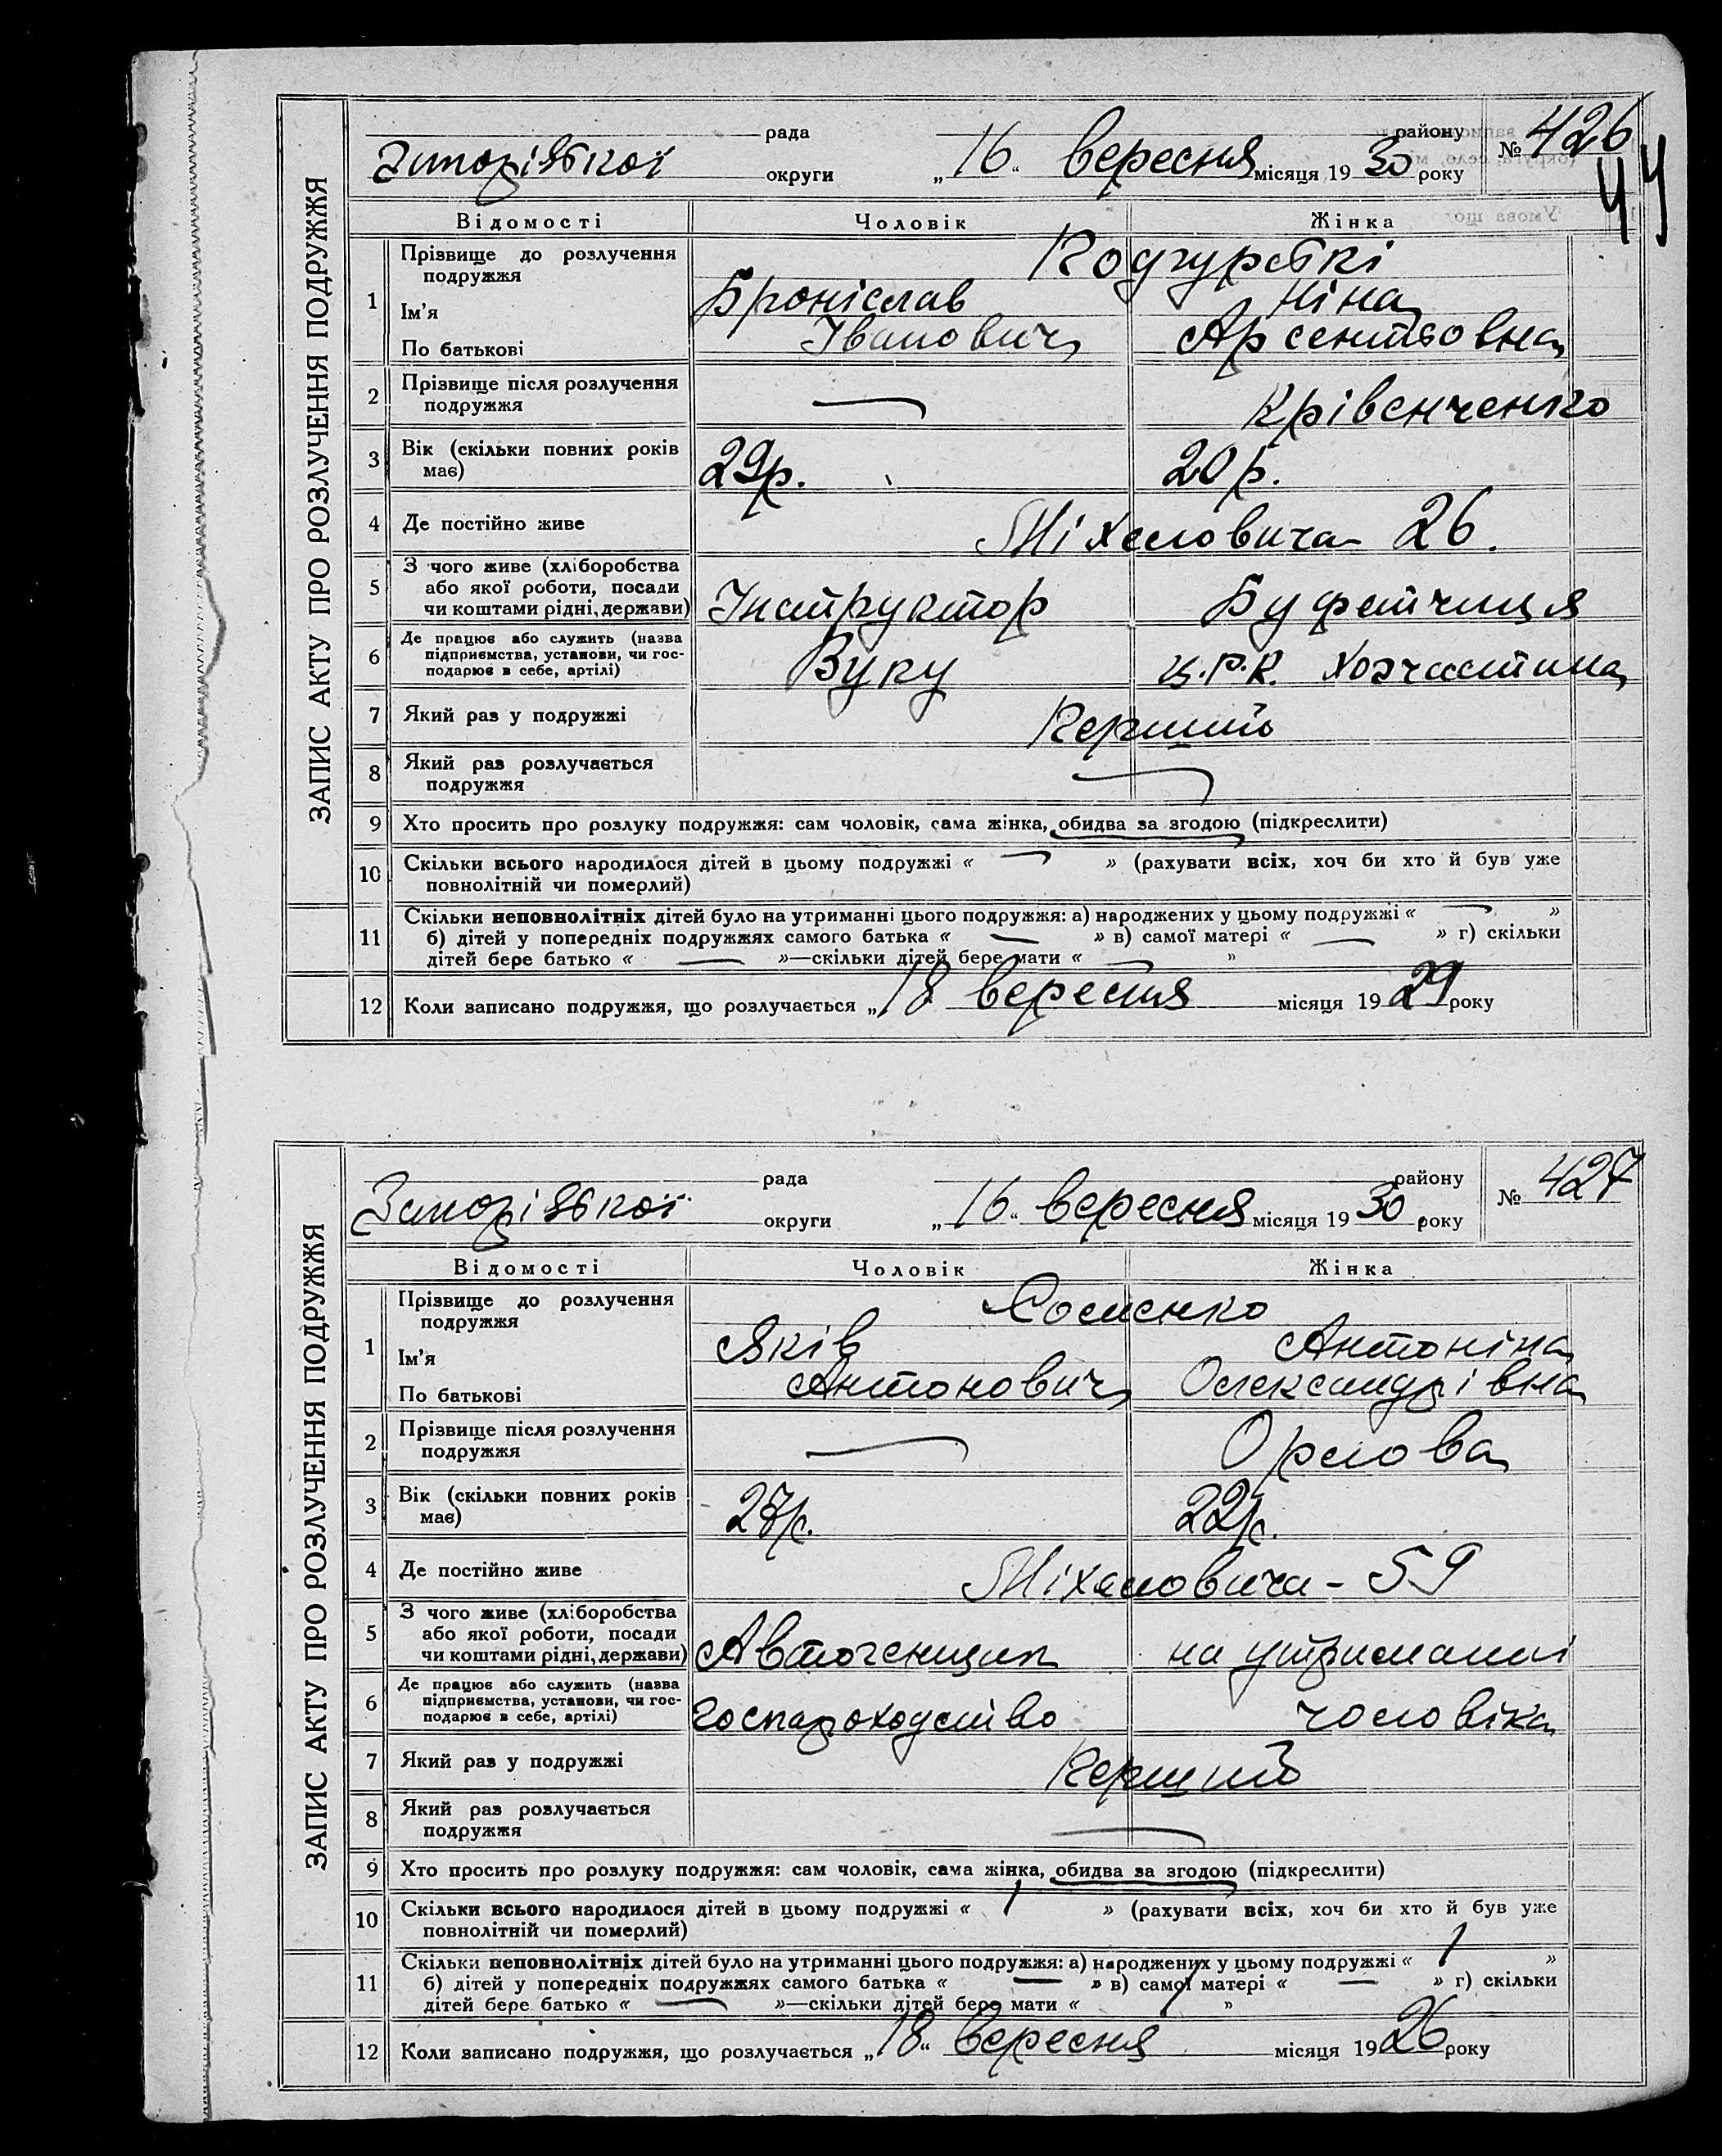 ЗАПИС АКТУ ПРО РОЗЛУЧЕННЯ ПОДРУЖЖЯ
рада району № 426
44
округи „16“ вересня місяця 1930 року
Відомості Чоловік Жінка
1 Прізвище до розлучення
подружжя
Ім'я Броніслав Ніна
По батькові Іванович
2 Прізвище після розлучення
подружжя — Крівенченко
3 Вік (скільки повних років
має) 29р. 20р.
4 Де постійно живе Міхеловича 26.
5 З чого живе (хліборобства
або якої роботи, посади
чи коштами рідні, держави) Інструктор Буфетчиця
6 Де працює або служить (назва
підприємства, установи, чи гос-
подарює в себе, артілі) Вуку Ц.Р.К. Хозчастина
7 Який раз у подружжі
8 Який раз розлучається
подружжя —
9 Хто просить про розлуку подружжя: сам чоловік, сама жінка, обидва за згодою (підкреслити)
10 Скільки всього народилося дітей в цьому подружжі « — » (рахувати всіх, хоч би хто й був уже
повнолітній чи померлий)
11 Скільки неповнолітніх дітей було на утриманні цього подружжя: а) народжених у цьому подружжі « — »
б) дітей у попередніх подружжях самого батька « — » в) самої матері « — » г) скільки
дітей бере батько « — »—скільки дітей бере мати « — »
12 Коли записано подружжя, що розлучається „18 вересня місяця 1929 року
ЗАПИС АКТУ ПРО РОЗЛУЧЕННЯ ПОДРУЖЖЯ
рада району № 427
округи „16“ вересня місяця 1930 року
Відомості Чоловік Жінка
1 Прізвище до розлучення
подружжя
Ім'я Яків Антоніна
По батькові Антонович Олександрівна
2 Прізвище після розлучення
подружжя — Орлова
3 Вік (скільки повних років
має) 27р. 22р.
4 Де постійно живе Міхеловича - 59
5 З чого живе (хліборобства
або якої роботи, посади
чи коштами рідні, держави) на утриманні
6 Де працює або служить (назва
підприємства, установи, чи гос-
подарює в себе, артілі) Госпароходство чоловіка
7 Який раз у подружжі
8 Який раз розлучається
подружжя —
9 Хто просить про розлуку подружжя: сам чоловік, сама жінка, обидва за згодою (підкреслити)
10 Скільки всього народилося дітей в цьому подружжі « 1 » (рахувати всіх, хоч би хто й був уже
повнолітній чи померлий)
11 Скільки неповнолітніх дітей було на утриманні цього подружжя: а) народжених у цьому подружжі « 1 »
б) дітей у попередніх подружжях самого батька « — » в) самої матері « — » г) скільки
дітей бере батько « — »—скільки дітей бере мати « 1 »
12 Коли записано подружжя, що розлучається „18“ вересня місяця 1926 року